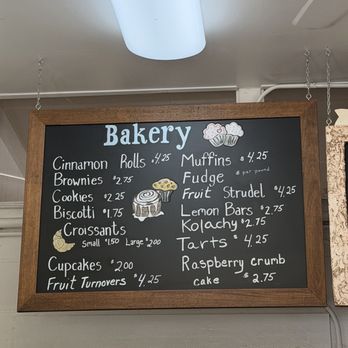 Bakery
Cinnamon Rolls $4.25
Brownies $2.75
Cookies $2.25
Biscotti $1.75
Croissants
Small $1.50 Large $2.00
Cupcakes $2.00
Fruit Turnovers $4.25
Muffins $4.25
Fudge $ per pound
Fruit Strudel $4.25
Lemon Bars $2.75
Kolachy $2.75
Tarts $4.25
Raspberry crumb
cake $2.75